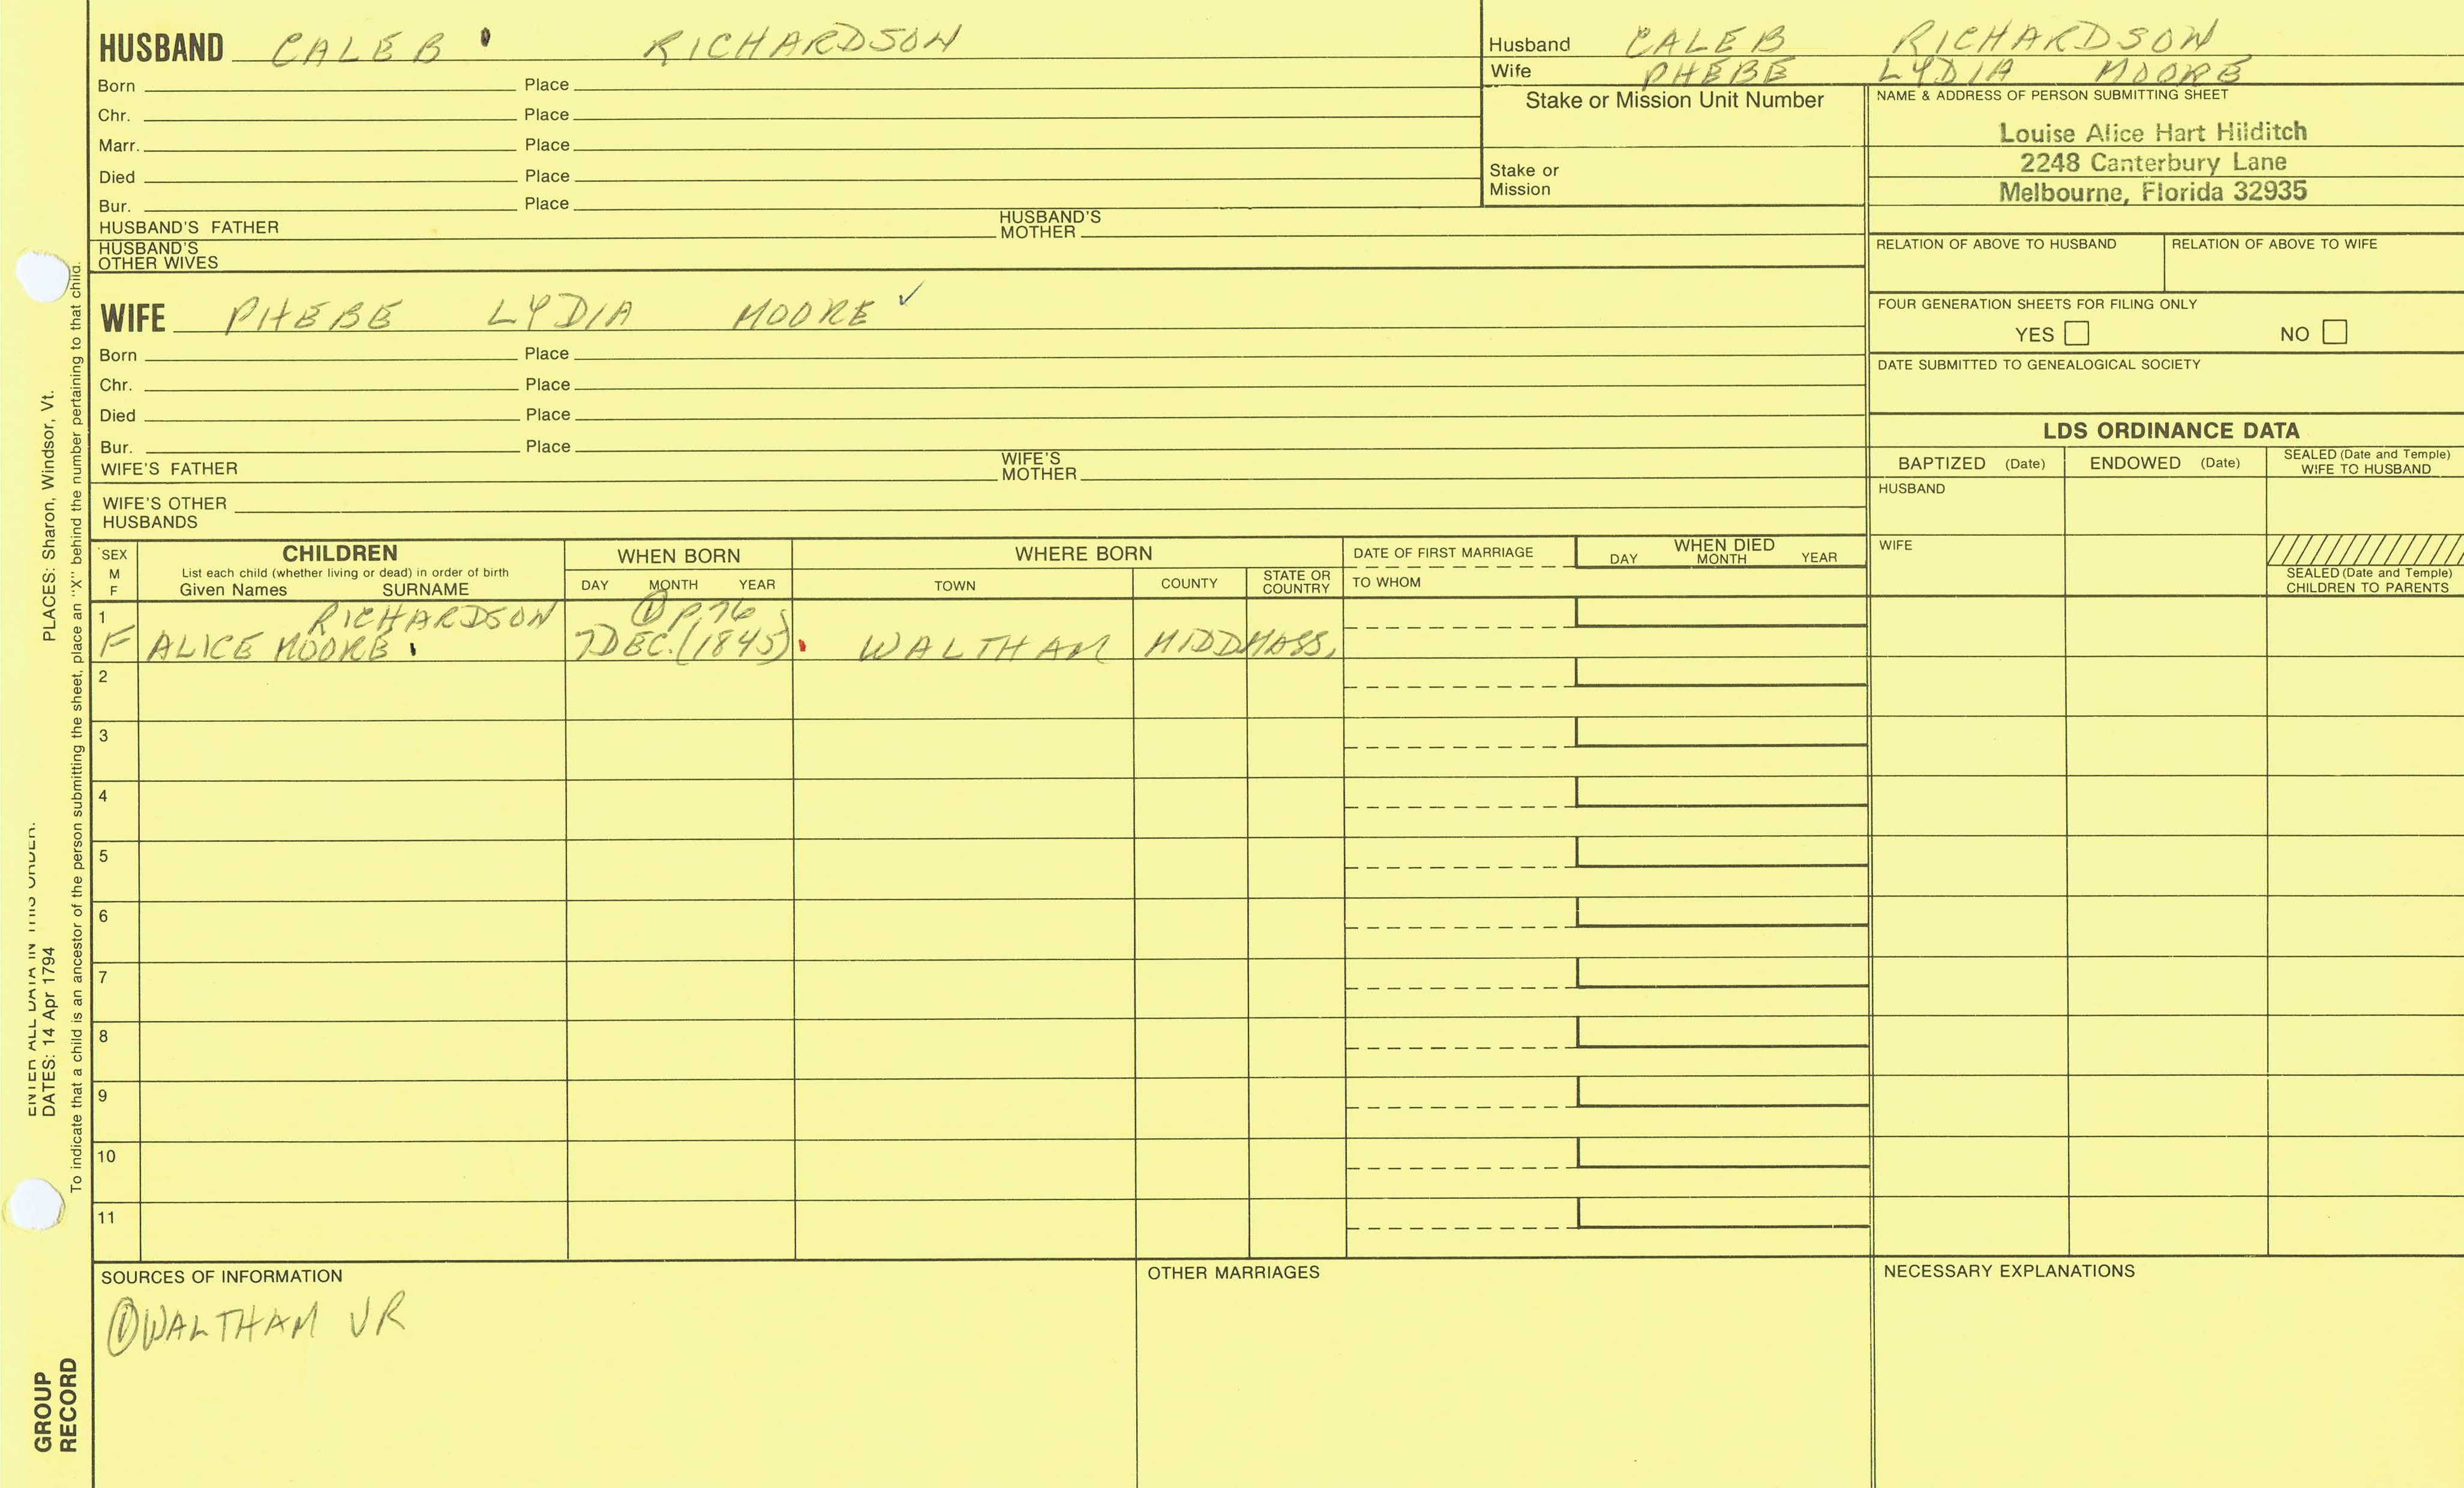 HUSBAND CALEB RICHARDSON
Born Place
Chr. Place
Marr. Place
Died Place
Bur. Place
HUSBAND'S FATHER HUSBAND'S MOTHER
HUSBAND'S OTHER WIVES
Husband CALEB RICHARDSON
Wife PHEBE LYDIA MOORE
Stake or Mission Unit Number
Stake or Mission
NAME & ADDRESS OF PERSON SUBMITTING SHEET
Louise Alice Hart Hilditch
2248 Canterbury Lane
Melbourne, Florida 32935
RELATION OF ABOVE TO HUSBAND RELATION OF ABOVE TO WIFE
FOUR GENERATION SHEETS FOR FILING ONLY
YES NO
DATE SUBMITTED TO GENEALOGICAL SOCIETY
WIFE PHEBE LYDIA MOORE ✓
Born Place
Chr. Place
Died Place
Bur. Place
WIFE'S FATHER WIFE'S MOTHER
WIFE'S OTHER HUSBANDS
LDS ORDINANCE DATA
BAPTIZED (Date) ENDOWED (Date) SEALED (Date and Temple) WIFE TO HUSBAND
HUSBAND
WIFE
SEALED (Date and Temple) CHILDREN TO PARENTS
SEX M F
CHILDREN
List each child (whether living or dead) in order of birth
Given Names SURNAME
WHEN BORN
DAY MONTH YEAR
WHERE BORN
TOWN COUNTY STATE OR COUNTRY
DATE OF FIRST MARRIAGE
TO WHOM
WHEN DIED
DAY MONTH YEAR
1 RICHARDSON ① P.76
F ALICE MOORE 7 DEC. (1845) WALTHAM MIDD MASS.
2
3
4
5
6
7
8
9
10
11
SOURCES OF INFORMATION
① WALTHAM VR
OTHER MARRIAGES
NECESSARY EXPLANATIONS
ENTER ALL DATA IN THIS ORDER:
DATES: 14 Apr 1794 PLACES: Sharon, Windsor, Vt.
To indicate that a child is an ancestor of the person submitting the sheet, place an "X" behind the number pertaining to that child.
GROUP
RECORD